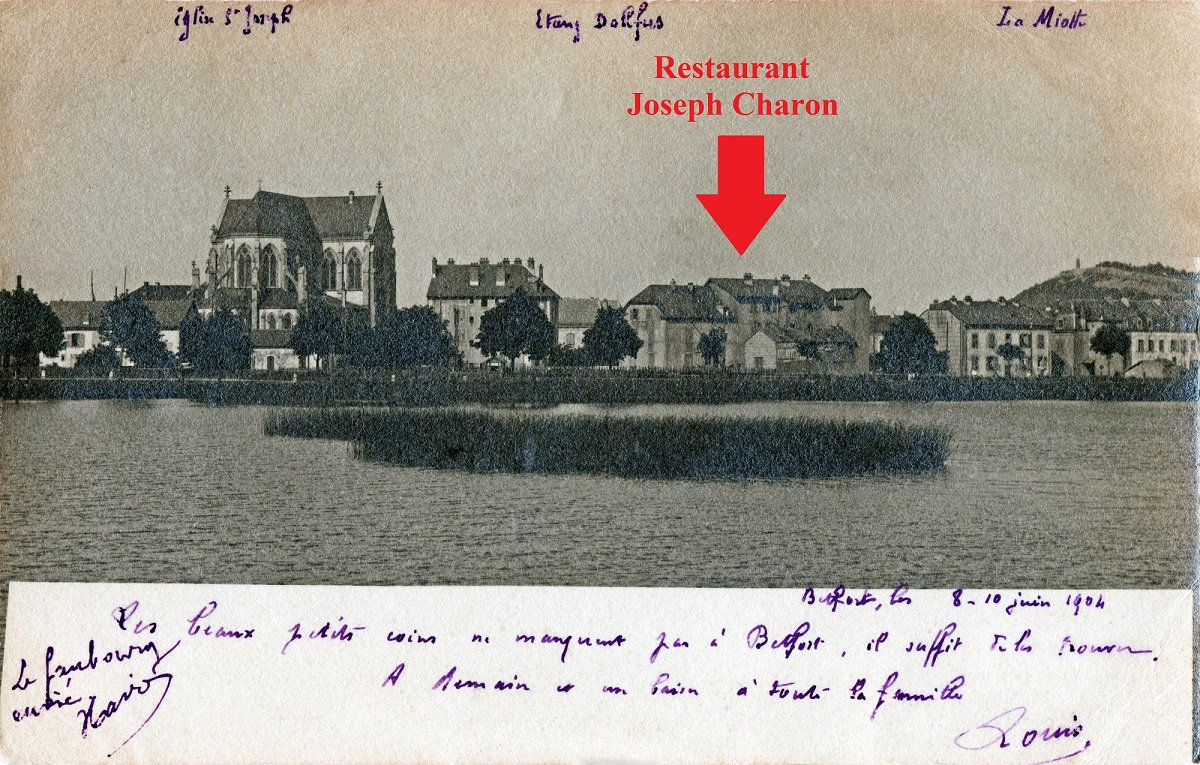 église St Joseph
Etang Dollfus
La Miotte
Restaurant
Joseph Charon
Belfort, les 8-10 juin 1904
Les beaux petits coins ne manquent pas à Belfort, il suffit de les trouver.
A demain et un baiser à toute la famille
Louis.
Le faubourg